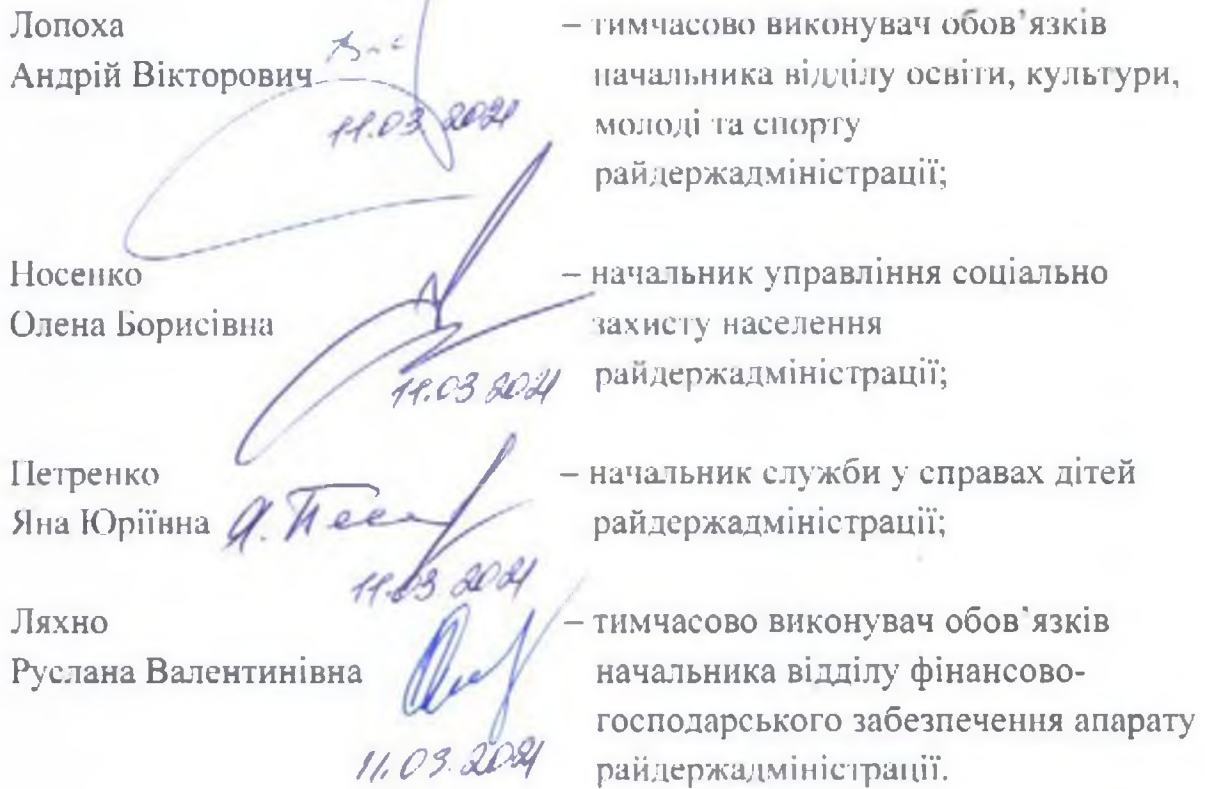 Лопоха
Андрій Вікторович
11.03 2021
– тимчасово виконувач обов’язків
начальника відділу освіти, культури,
молоді та спорту
райдержадміністрації;
Носенко
Олена Борисівна
11.03 2021
– начальник управління соціально
захисту населення
райдержадміністрації;
Петренко
Яна Юріївна
11.03 2021
– начальник служби у справах дітей
райдержадміністрації;
Ляхно
Руслана Валентинівна
11.03.2021
– тимчасово виконувач обов’язків
начальника відділу фінансово-
господарського забезпечення апарату
райдержадміністрації.